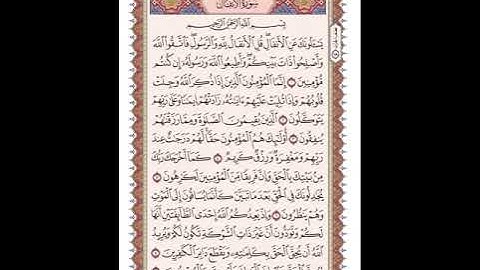 سورة الأنفال
بسم الله الرحمن الرحيم
يَسْـَٔلُونَكَ عَنِ ٱلْأَنفَالِ قُلِ ٱلْأَنفَالُ لِلَّهِ وَٱلرَّسُولِ فَٱتَّقُوا۟ ٱللَّهَ
وَأَصْلِحُوا۟ ذَاتَ بَيْنِكُمْ وَأَطِيعُوا۟ ٱللَّهَ وَرَسُولَهُۥٓ إِن كُنتُم
مُّؤْمِنِينَ ١ إِنَّمَا ٱلْمُؤْمِنُونَ ٱلَّذِينَ إِذَا ذُكِرَ ٱللَّهُ وَجِلَتْ
قُلُوبُهُمْ وَإِذَا تُلِيَتْ عَلَيْهِمْ ءَايَٰتُهُۥ زَادَتْهُمْ إِيمَٰنًا وَعَلَىٰ رَبِّهِمْ
يَتَوَكَّلُونَ ٢ ٱلَّذِينَ يُقِيمُونَ ٱلصَّلَوٰةَ وَمِمَّا رَزَقْنَٰهُمْ
يُنفِقُونَ ٣ أُو۟لَٰٓئِكَ هُمُ ٱلْمُؤْمِنُونَ حَقًّا لَّهُمْ دَرَجَٰتٌ عِندَ
رَبِّهِمْ وَمَغْفِرَةٌ وَرِزْقٌ كَرِيمٌ ٤ كَمَآ أَخْرَجَكَ رَبُّكَ
مِنۢ بَيْتِكَ بِٱلْحَقِّ وَإِنَّ فَرِيقًا مِّنَ ٱلْمُؤْمِنِينَ لَكَٰرِهُونَ ٥
يُجَٰدِلُونَكَ فِى ٱلْحَقِّ بَعْدَ مَا تَبَيَّنَ كَأَنَّمَا يُسَاقُونَ إِلَى ٱلْمَوْتِ
وَهُمْ يَنظُرُونَ ٦ وَإِذْ يَعِدُكُمُ ٱللَّهُ إِحْدَى ٱلطَّآئِفَتَيْنِ أَنَّهَا
لَكُمْ وَتَوَدُّونَ أَنَّ غَيْرَ ذَاتِ ٱلشَّوْكَةِ تَكُونُ لَكُمْ وَيُرِيدُ
ٱللَّهُ أَن يُحِقَّ ٱلْحَقَّ بِكَلِمَٰتِهِۦ وَيَقْطَعَ دَابِرَ ٱلْكَٰفِرِينَ ٧